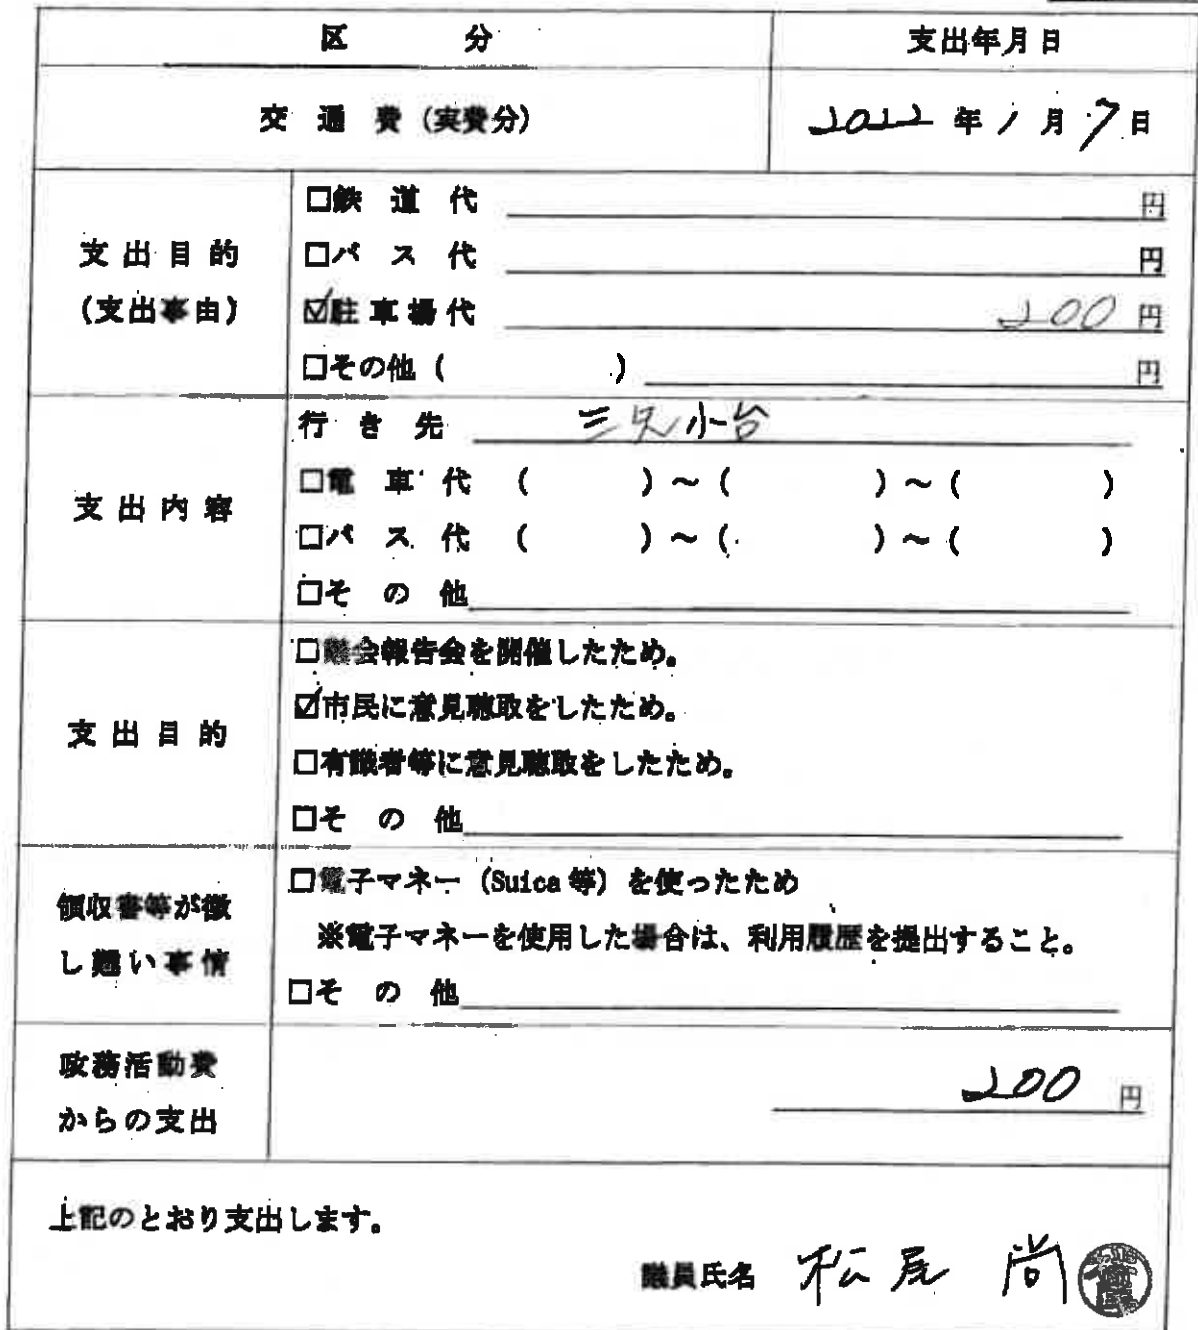 区　分　支出年月日
交 通 費 (実費分)　2022 年 1 月 7 日
支出目的
(支出事由)
□鉄 道 代　円
□バ ス 代　円
☑駐車場代　200 円
□その他 (　　)　円
支出内容
行 き 先　三ツ沢小台
□電 車 代 (　　) ～ (　　) ～ (　　)
□バ ス 代 (　　) ～ (　　) ～ (　　)
□そ の 他
支出目的
□議会報告会を開催したため。
☑市民に意見聴取をしたため。
□有識者等に意見聴取をしたため。
□そ の 他
領収書等が徴
し難い事情
□電子マネー (Suica 等) を使ったため
※電子マネーを使用した場合は、利用履歴を提出すること。
□そ の 他
政務活動費
からの支出
200 円
上記のとおり支出します。
議員氏名　松尾 尚